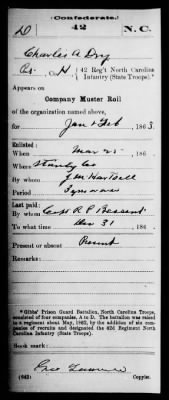 (Confederate.)
D 42 N. C.
Charles A Dry
Co. H, 42 Reg't North Carolina
Infantry (State Troops).*
Appears on
Company Muster Roll
of the organization named above,
for Jan & Feb, 1863.
Enlisted:
When Mar 25, 186
Where Stanly Co
By whom J. M. Hartsell
Period 3 years or war
Last paid:
By whom Capt R P Bessent
To what time Dec 31, 186
Present or absent Present
Remarks:
*Gibbs' Prison Guard Battalion, North Carolina Troops,
consisted of four companies, A to D. The battalion was raised
to a regiment about May, 1862, by the addition of six com-
panies of recruits and designated the 42d Regiment North
Carolina Infantry (State Troops).
Book mark:
(642) Copyist.